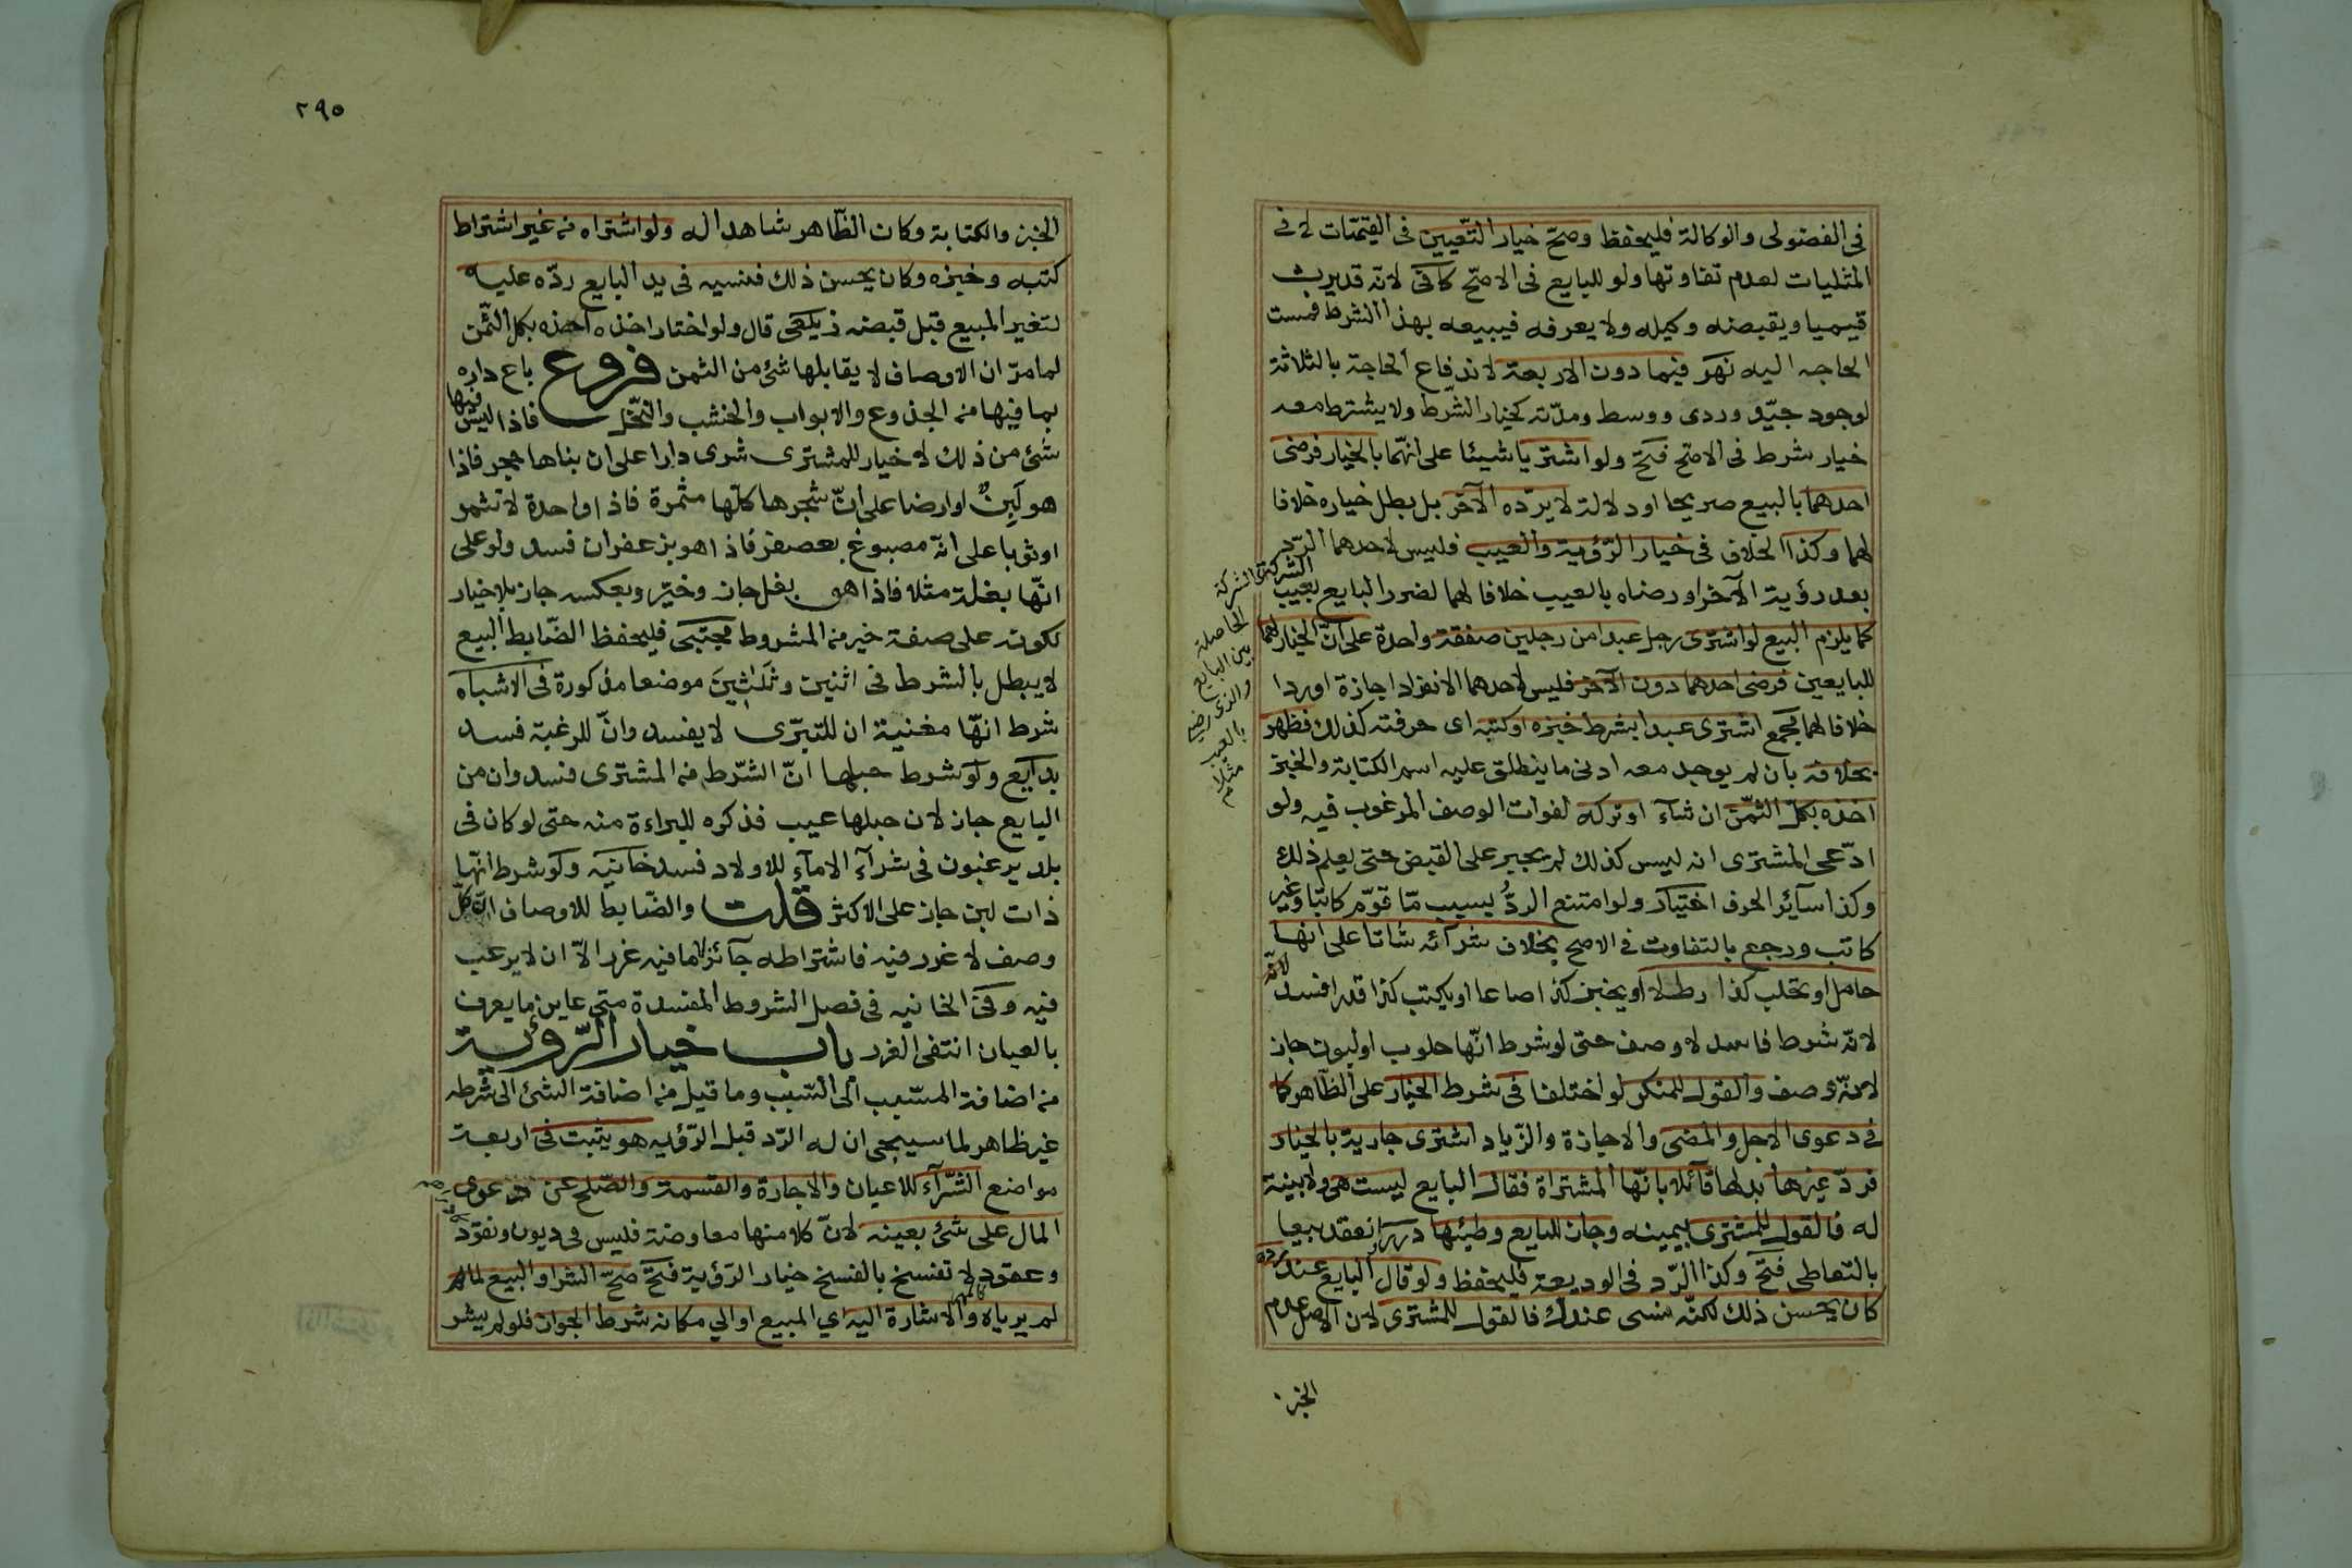 فى الفضولى والوكالة فليحفظ وصحّ خيار التّعيين فى القيمّيات لا فى
المثليات لعدم تفاوتها ولو للبايع فى الاصّح كافى لانّه قديرث
قيميا ويقبضه وكيله ولا يعرفه فيبيعه بهذا الشرط فمست
الحاجه اليه نهر فيما دون الاربعة لاندفاع الحاجة بالثلاثة
لوجود جيّد وردى ووسط ومدّته كخيار الشّرط ولا يشترط معه
خيار شرط فى الاصّح فتح ولو اشتريا شيئا على انّهما بالخيار فرضى
احدهما بالبيع صريحا او دلالة لا يردّه الآخر بل بطل خياره خلافا
لهما وكذا الخلاف فى خيار الرّؤية والعيب فليس لاحدهما الرّد
بعد رؤية الآخر او رضاه بالعيب خلافا لهما لضرر البايع بعيب الشركة
كما يلزم البيع لو اشترى رجل عبدا من رجلين صفقة واحدة على انّ الخيار لهما
للبايعين فرضى احدهما دون الآخر فليس لاحدهما الانفراد اجازة او ردا
خلافا لهما مجمع اشترى عبدا بشرط خبزه او كتبه اى حرفته كذلك فظهر
بخلافه بان لم يوجد معه ادنى ما ينطلق عليه اسم الكتابة والخبز
اخذه بكلّ الثّمن ان شآء او تركه لفوات الوصف المرغوب فيه ولو
ادّعى المشترى انه ليس كذلك لم يجبر على القبض حتى يعلم ذلك
وكذا سآئر الحرف اختيار ولو امتنع الردُّ بسبب مّا قوّم كاتبا وغير
كاتب ورجع بالتفاوت فى الاصح بخلاف شرآئه شاتا على انها
حامل او تحلب كذا رطلا او يخبز كذا صاعا او يكتب كذا قدرا فسد لانّه
لانّه شرط فاسد لا وصف حتى لو شرط انّها حلوب او لبون جاز
لانّه وصف والقول للمنكر لو اختلفا فى شرط الخيار على الظّاهر كما
فى دعوى الاجل والمضى والاجازة والزّياد اشترى جارية بالخيار
فردّ غيرها بدلها قآئلا بانّها المشتراة فقال البايع ليست هى ولا بينة
له فالقول للمشترى بيمينه وجاز للبايع وطيئها درر انعقد بيعا
بالتعاطى فتح وكذا الرّد فى الوديعة فليحفظ ولو قال البايع عند رده
كان يحسن ذلك لكنّه نسى عندك فالقول للمشترى لان الاصل عدم
الشركة
الحاصلة
بين البايع
والذى رضى
بالعيب
مثلا م
الخبز
٢٩٥
الخبز والكتابة وكان الظّاهر شاهدا له ولو اشتراه من غير اشتراط
كتبه وخبزه وكان يحسن ذلك فنسيه فى يد البايع ردّه عليه
لتغير المبيع قبل قبضه زيلعى قال ولو اختار اخذه اخذه بكل الثّمن
لما مرّ ان الاوصاف لا يقابلها شئ من الثمن فروع باع داره
بما فيها من الجذوع والابواب والخشب والنّخل فاذا ليس فيها
شئ من ذلك لا خيار للمشترى شرى دارا على ان بناها حجر فاذا
هو لَبِنٌ او ارضا على انّ شجرها كلّها مثمرة فاذا واحدة لا تثمر
او ثوبا على انّه مصبوغ بعصفر فاذا هو بزعفران فسد ولو على
انّها بغلة مثلا فاذا هو بغل جاز وخيّر وبعكسه جاز بلا خيار
لكونه على صفة خير من المشروط مجتبى فليحفظ الضّابط البيع
لا يبطل بالشرط فى اثنين وثلثين موضعا مذكورة فى الاشباه
شرط انّها مغنية ان للتبرّى لا يفسد وانّ للرغبة فسد
بدايع ولو شرط حبلها انّ الشّرط من المشترى فسد وان من
البايع جاز لان حبلها عيب فذكره للبراءة منه حتى لو كان فى
بلد يرغبون فى شرآء الامآء للاولاد فسد خانيه ولو شرط انّها
ذات لبن جاز على الاكثر قلت والضّابط للاوصاف انّ كلّ
وصف لا غرر فيه فاشتراطه جآئز لا ما فيه غرر الاّ ان لا يرغب
فيه وفى الخانيه فى فصل الشروط المفسدة متى عاين ما يعرف
بالعيان انتفى الغرر باب خيار الرّؤية
من اضافة المسّبب الى السّبب وما قيل من اضافة الشئ الى شرطه
غير ظاهر لما سيجى ان له الرّد قبل الرّؤيه هو يثبت فى اربعة
مواضع الشّرآء للاعيان والاجارة والقسمة والصّلح عن دعوى
المال على شئ بعينه لانّ كلا منها معاوضة فليس فى ديون ونقود
وعقود لا تفسخ بالفسخ خيار الرّؤية فتح صحّ الشرا والبيع لما لم
لم يرياه والاشارة اليه اي المبيع او الي مكانه شرط الجواز فلو لم يشر